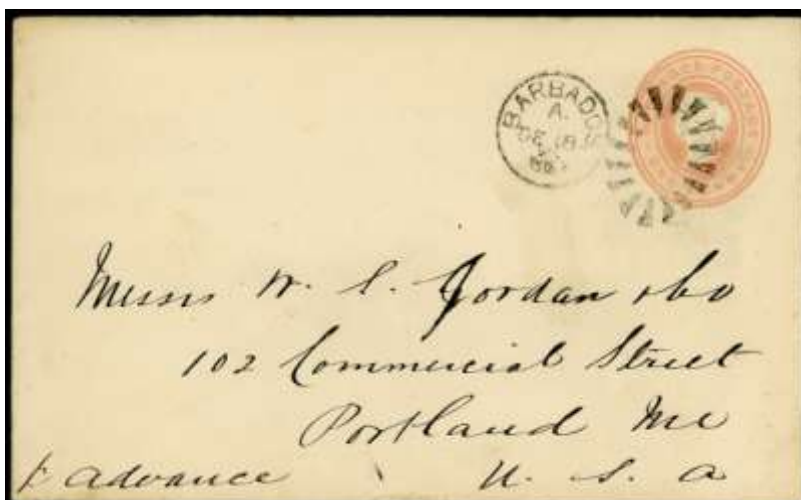 BARBADO
A
DE 18
Messrs W. S. Jordan & Co
102 Commercial Street
Portland Me
p Advance U. S. A